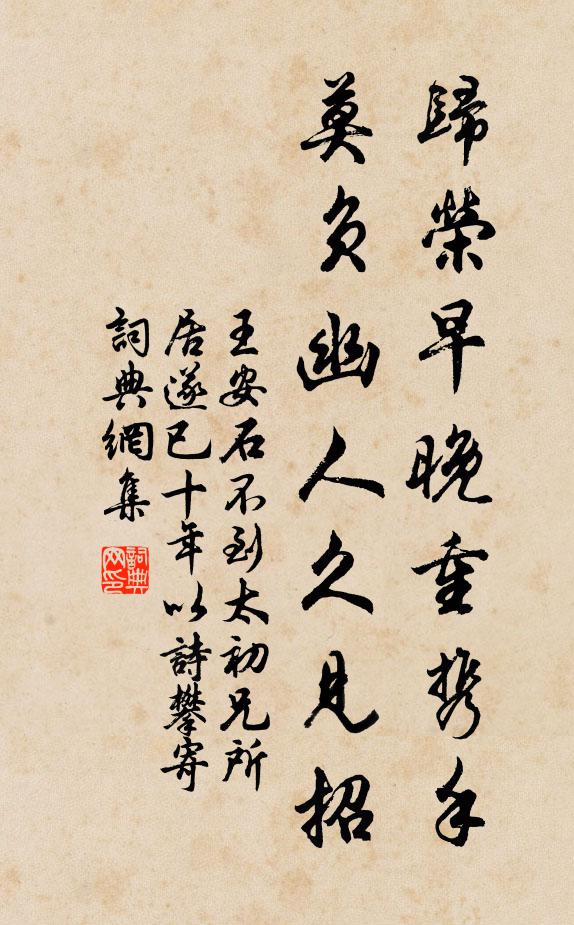 歸榮早晚重携手
莫負幽人久見招
王安石不到太初兄所
居遂已十年以詩攀寄
詞典網集
詞典网印